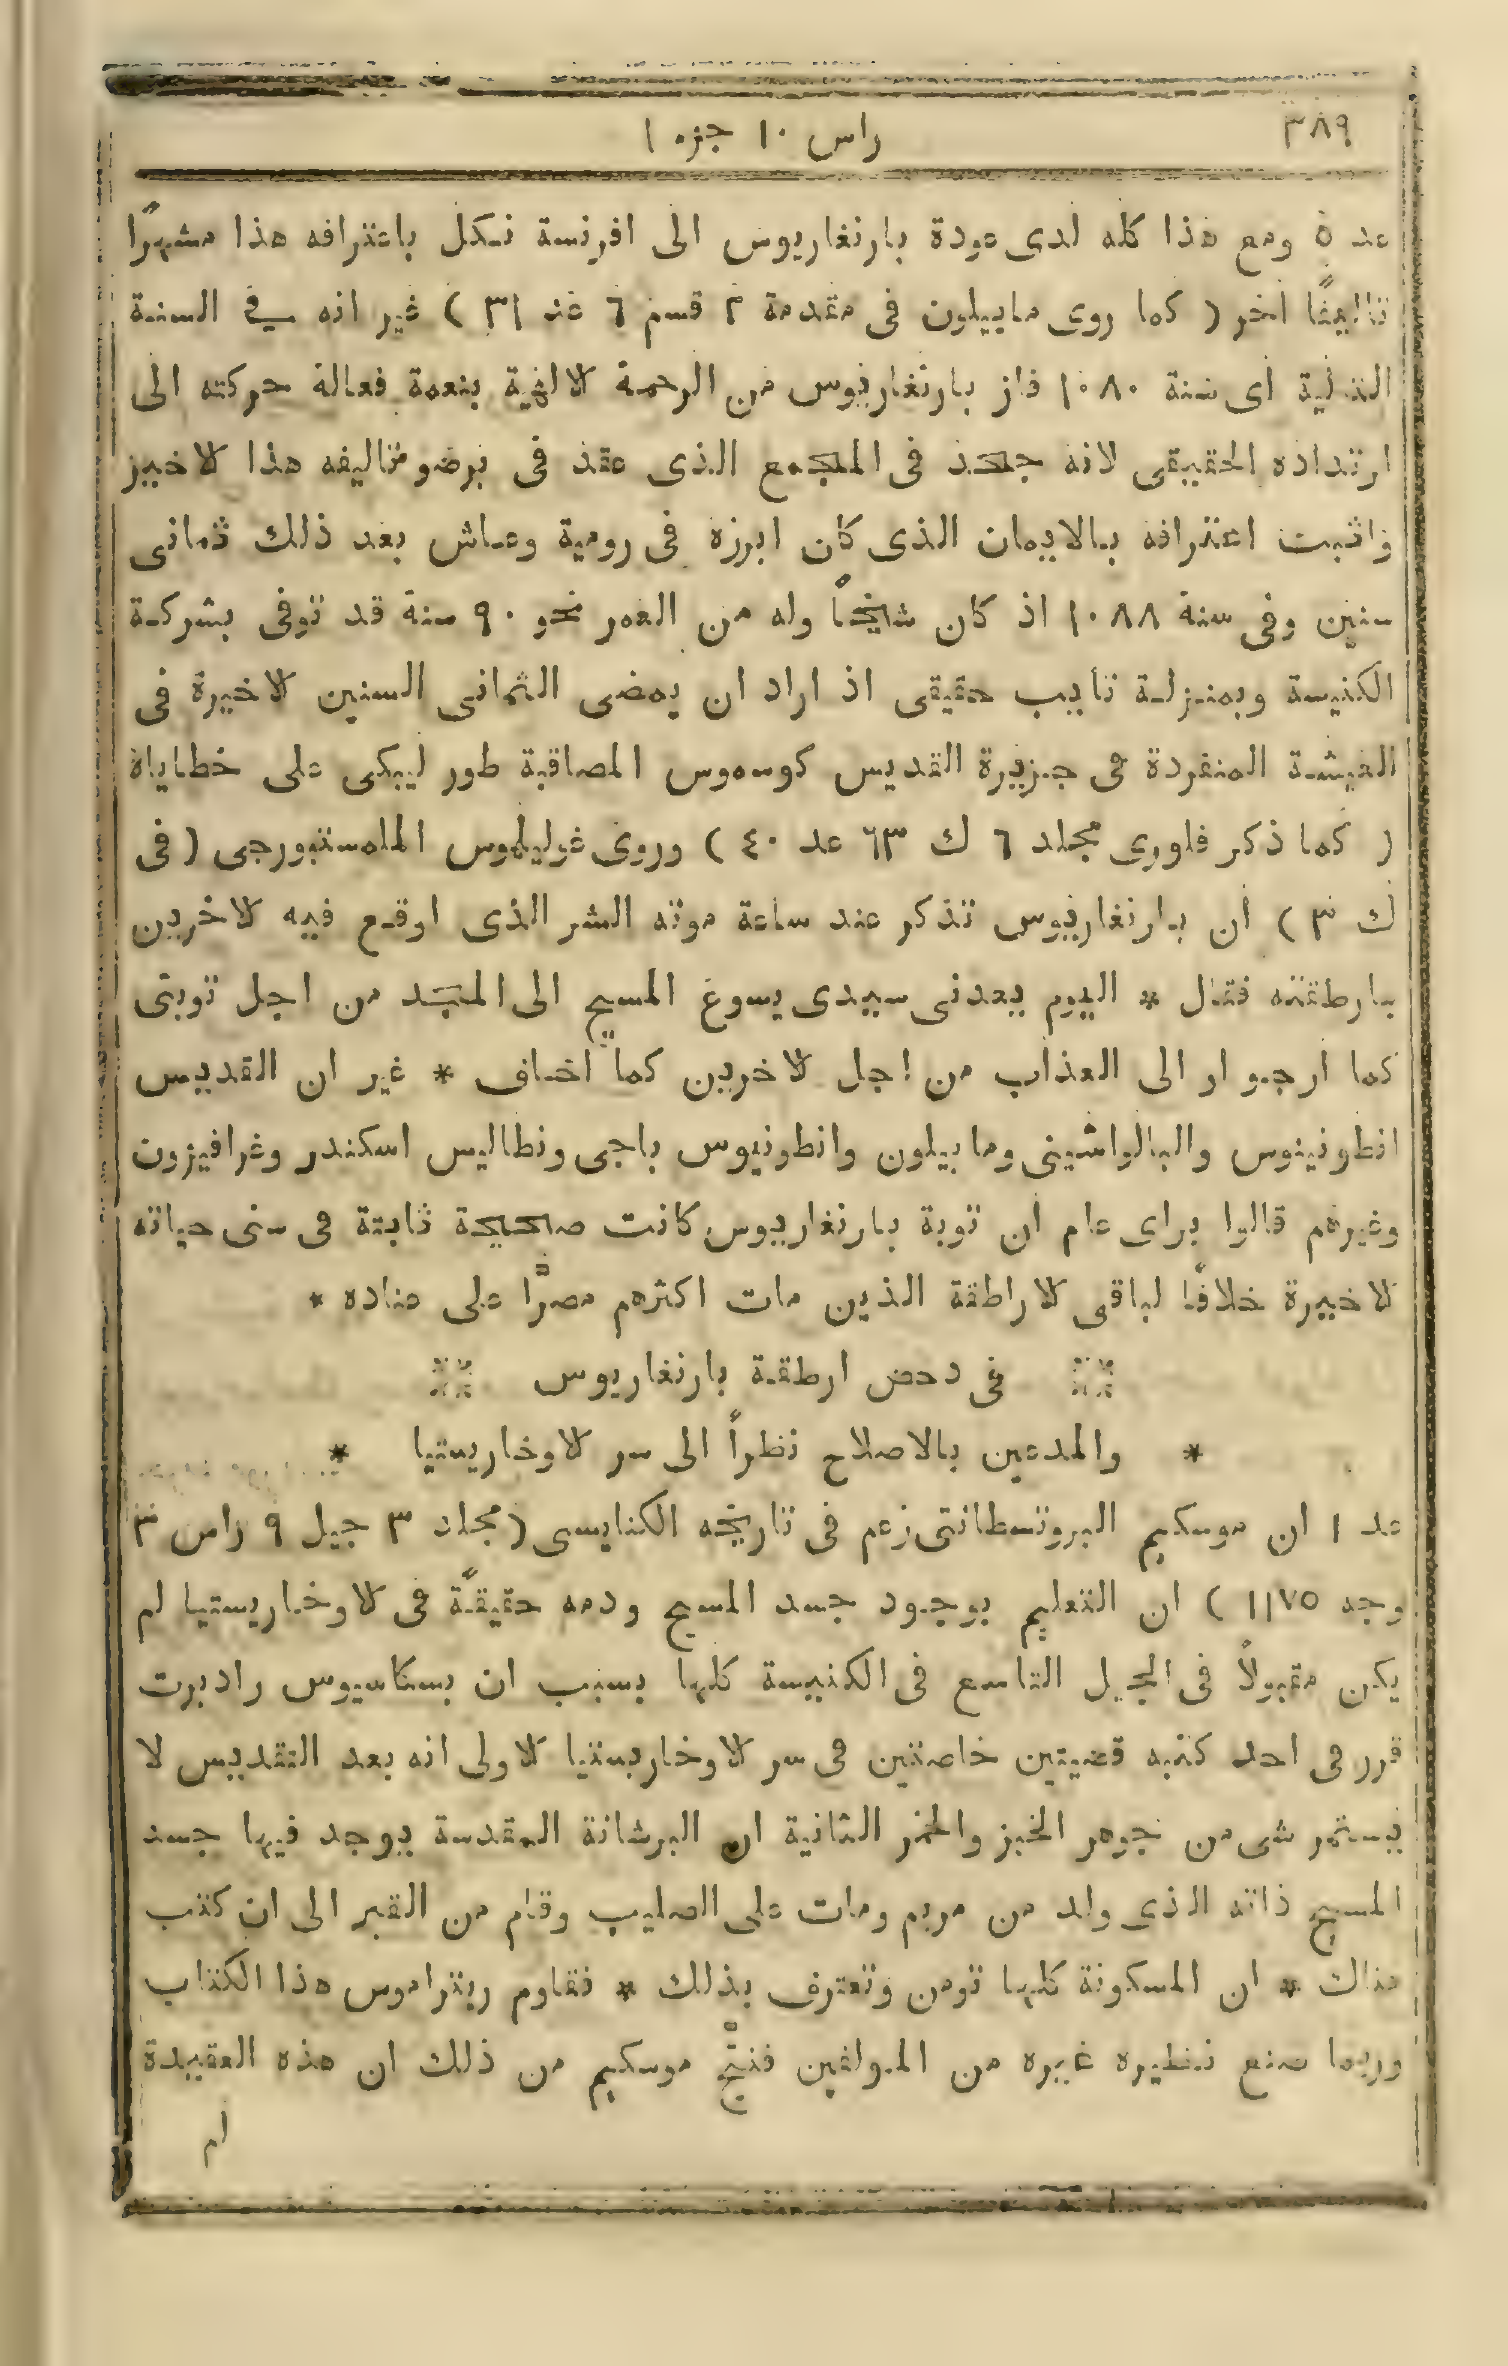 ٣٨٩
راس ١٠ جزء ١
عد ٥ ومع هذا كله لدى عودة بارنغاريوس الى افرنسة نكل باعترافه هذا مشهرًا
تاليفًا اخر ( كما روى مابيلون فى مقدمة ٢ قسم ٦ عد ٣١ ) غير انه في السنة
التالية اى سنة ١٠٨٠ فاز بارنغاريوس من الرحمة الالهية بنعمة فعالة حركته الى
ارتداده الحقيقى لانه جحد فى المجمع الذى عقد فى برضو تاليفه هذا الاخير
واثبت اعترافه بالايمان الذى كان ابرزه فى رومية وعاش بعد ذلك ثمانى
سنين وفى سنة ١٠٨٨ اذ كان شيخاً وله من العمر نحو ٩٠ سنة قد توفى بشركة
الكنيسة وبمنزلة تايب حقيقى اذ اراد ان يمضى الثمانى السنين الاخيرة فى
العيشة المنفردة فى جزيرة القديس كوسموس المصاقبة طور ليبكى على خطاياه
( كما ذكر فلورى مجلد ٦ ك ٦٣ عد ٤٠ ) وروى غوليلموس الملمستبورجى ( فى
ك ٣ ) ان بارنغاريوس تذكر عند ساعة موته الشر الذى اوقع فيه الاخرين
بارطقته فقال * اليوم يعدنى سيدى يسوع المسيح الى المجد من اجل توبتى
كما ارجو او الى العذاب من اجل الاخرين كما اخاف * غير ان القديس
انطونينوس والبالواشينى ومابيلون وانطونيوس باجى ونطاليس اسكندر وغرافيزون
وغيرهم قالوا براى عام ان توبة بارنغاريوس كانت صحيحة ثابتة فى سنى حياته
الاخيرة خلافًا لباقى الاراطقة الذين مات اكثرهم مصرًّا على عناده *
فى دحض ارطقة بارنغاريوس
* والمدعين بالاصلاح نظراً الى سر الاوخاريستيا *
عد ١ ان موسكيم البروتسطانتى زعم فى تاريخه الكنايسى ( مجلد ٣ جيل ٩ راس ٣
وجه ١١٧٥ ) ان التعليم بوجود جسد المسيح ودمه حقيقةً فى الاوخاريستيا لم
يكن مقبولاً فى الجيل التاسع فى الكنيسة كلها بسبب ان بسكاسيوس رادبرت
قرر فى احد كتبه قضيتين خاصتين فى سر الاوخاريستيا الاولى انه بعد التقديس لا
يستمر شى من جوهر الخبز والخمر الثانية ان البرشانة المقدسة يوجد فيها جسد
المسيح ذاته الذى ولد من مريم ومات على الصليب وقام من القبر الى ان كتب
هناك * ان المسكونة كلها تومن وتعترف بذلك * فقاوم ريتراموس هذا الكتاب
وربما صنع نظيره غيره من المولفين فنتّج موسكيم من ذلك ان هذه العقيدة
لم